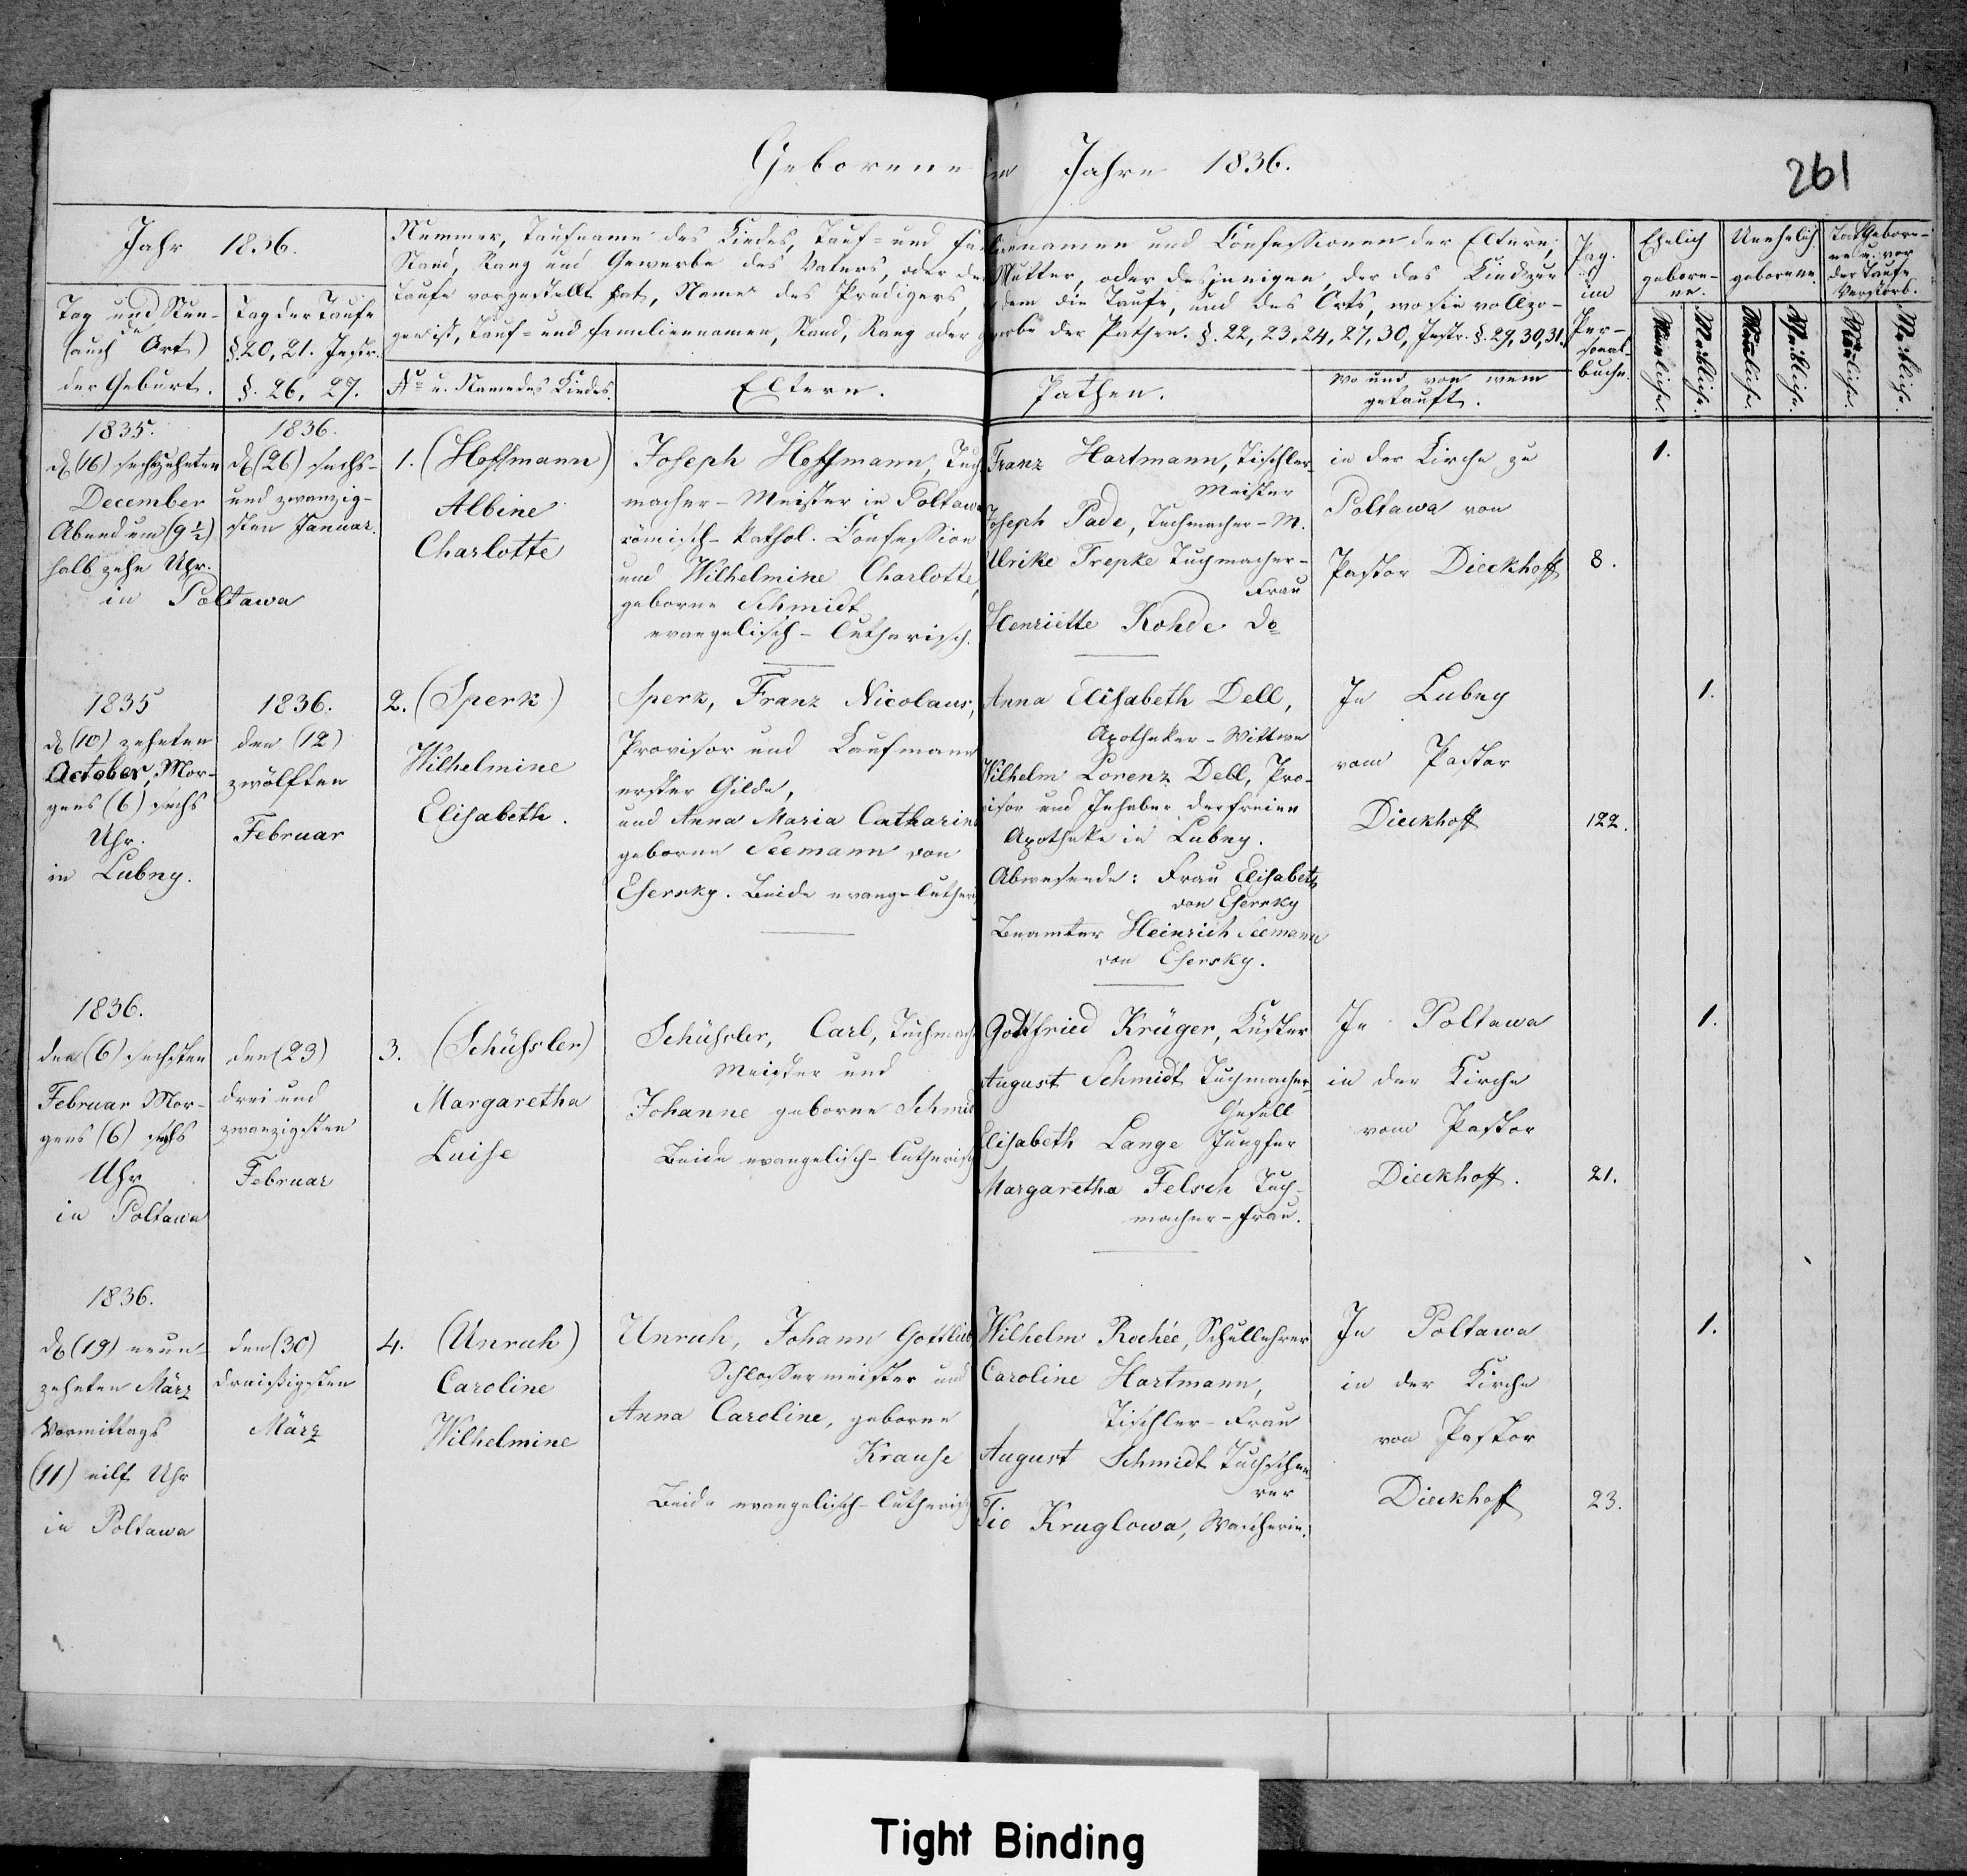 Geborene im Jahre 1836.
261
Jahr 1836.
Tag und Stunde
(auch Ort)
der Geburt.
Tag der Taufe
§. 20, 21. Instr.
§. 26, 27.
Nummer, Taufname des Kindes, Tauf- und Familiennamen und Confessionen der Eltern,
Stand, Rang und Gewerbe des Vaters, oder der Mutter, oder desjenigen, der das Kind zur
Taufe vorgestellt hat, Name des Predigers, dem die Taufe, und des Orts, wo sie vollzo-
gen ist, Tauf- und Familiennamen, Stand, Rang oder Gewerbe der Pathen. §. 22, 23, 24, 27, 30, Instr. §. 29, 30, 31.
No u. Name des Kindes.
Eltern.
Pathen.
Wo und von wem
getauft.
Pag.
im
Per-
sonal-
buche.
Ehelich
gebore-
ne.
Unehelich
geborene.
Todtgebore-
ne u. vor
der Taufe
Verstorb.
Männliche.
Weibliche.
Männliche.
Weibliche.
Männliche.
Weibliche.
1835.
d (16) sechszehnten
December
Abend um (9 1/2)
halb zehn Uhr.
in Poltawa
1836.
d (26) sechs-
und zwanzig-
sten Januar.
1. (Hoffmann)
Albine
Charlotte
Joseph Hoffmann, Tuch-
macher-Meister in Poltawa
römisch-kathol. Confession
und Wilhelmine Charlotte,
geborne Schmidt
evangelisch-lutherisch.
Franz Hartmann, Tischler-
Meister
Joseph Pade, Tuchmacher-M.
Ulrike Trepke Tuchmacher-
Frau
Henriette Rohde do
in der Kirche zu
Poltawa von
Pastor Dieckhoff
8.
1.
1835
d (10) zehnten
October, Mor-
gens (6) sechs
Uhr.
in Lubny.
1836.
den (12)
zwölften
Februar
2. (Sperk)
Wilhelmine
Elisabeth.
Sperk, Franz Nicolaus,
Provisor und Kaufmann
erster Gilde,
und Anna Maria Catharina
geborne Seemann von
Esersky. Beide evang-lutherisch
Anna Elisabeth Dell,
Apotheker-Wittwe
Wilhelm Lorenz Dell, Pro-
visor und Inhaber der freien
Apotheke in Lubny.
Abwesende: Frau Elisabeth
von Esersky
Beamter Heinrich Seemann
von Esersky.
In Lubny
vom Pastor
Dieckhoff
122.
1.
1836.
den (6) sechsten
Februar Mor-
gens (6) sechs
Uhr
in Poltawa
den (23)
drei und
zwanzigsten
Februar
3. (Schüssler)
Margaretha
Luise
Schüssler, Carl, Tuchmach
Meister und
Johanne geborne Schmidt
Beide evangelisch-lutherisch
Gottfried Krüger, Küster
August Schmidt Tuchmacher-
Gesell
Elisabeth Lange Jungfer
Margaretha Felsch Tuch-
macher-Frau.
In Poltawa
in der Kirche
vom Pastor
Dieckhoff.
21.
1.
1836.
d (19) neun-
zehnten März
Vormittags
(11) eilf Uhr
in Poltawa
den (30)
dreißigsten
März
4. (Unruh)
Caroline
Wilhelmine
Unruh, Johann Gottlieb
Schlossermeister und
Anna Caroline, geborne
Krause
Beide evangelisch-lutherisch
Wilhelm Rochée, Schullehrer
Caroline Hartmann,
Tischler-Frau
August Schmidt Tuchschee-
rer
Tio Kruglowa, Wascherin.
In Poltawa
in der Kirche
von Pastor
Dieckhoff
23.
1.
Tight Binding